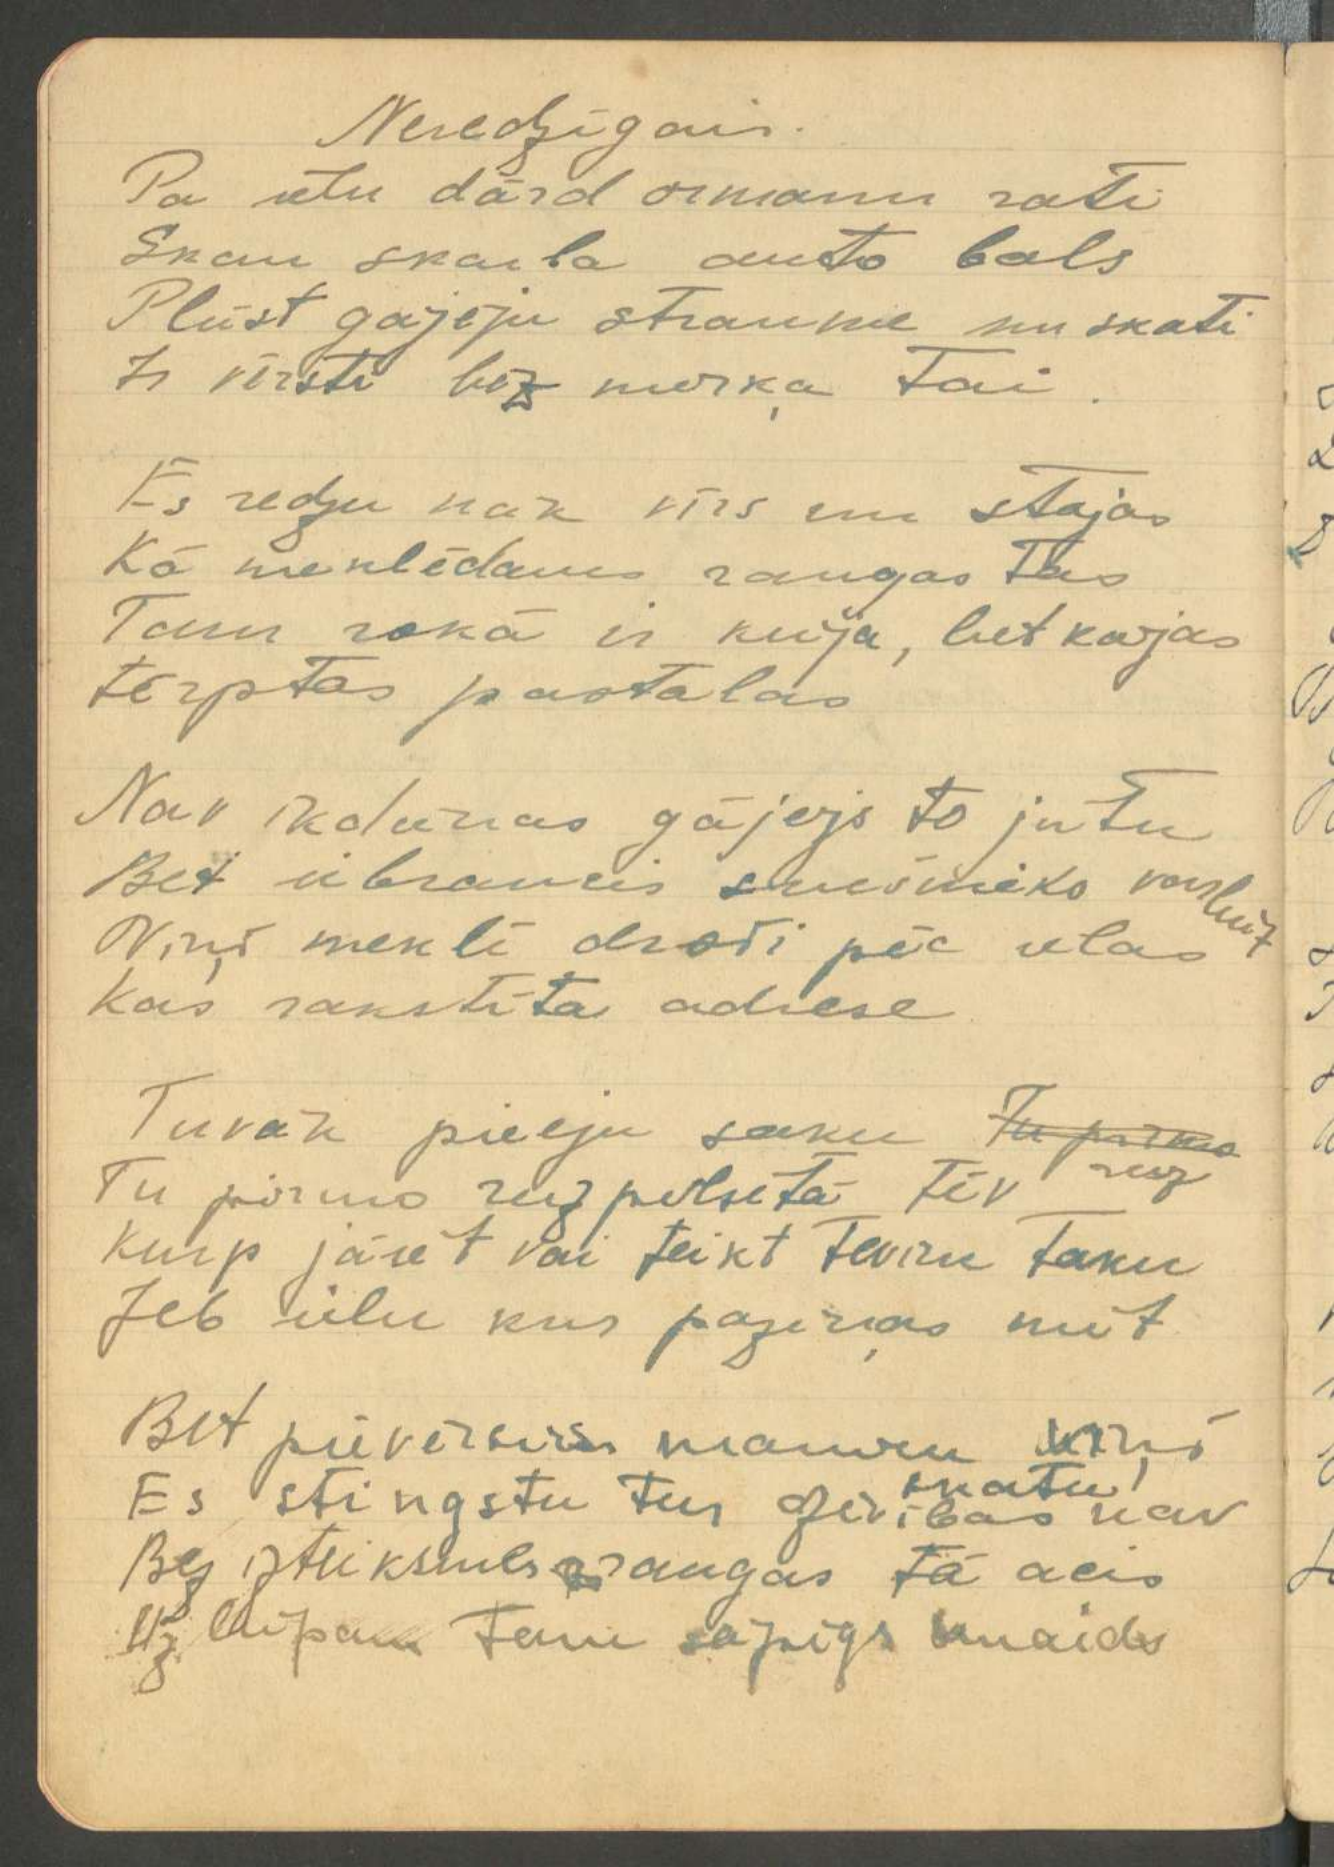 Neredzīgais.
Pa ielu dārd ormaņu rati
Skan skaļa auto bals
Plūst gājēju straume un skati
Ir vērsti bez mērķa tai.
Es redzu nāk vīrs un stājas
Kā meklēdams raugas tas
Tam rokā ir kūja, bet kājas
tērptas pastalas
Nav ikdienas gājējs to jūtu
Bet iebraucis
Viņš meklē droši pēc ielas
Kas rakstīta adrese
Tuvāk pieeju saku Tu pirmo
Tu pirmo reiz pilsētā tēv reiz
Kurp jāiet vai teikt tevim taku
Jeb ielu kur paziņas mīt
Bet pievērsis manim viņš
skatu
Es stingstu tur dzīvības nav
Bez izteiksmes raugas tā acis
Uz lūpam tam sāpīgs smaids